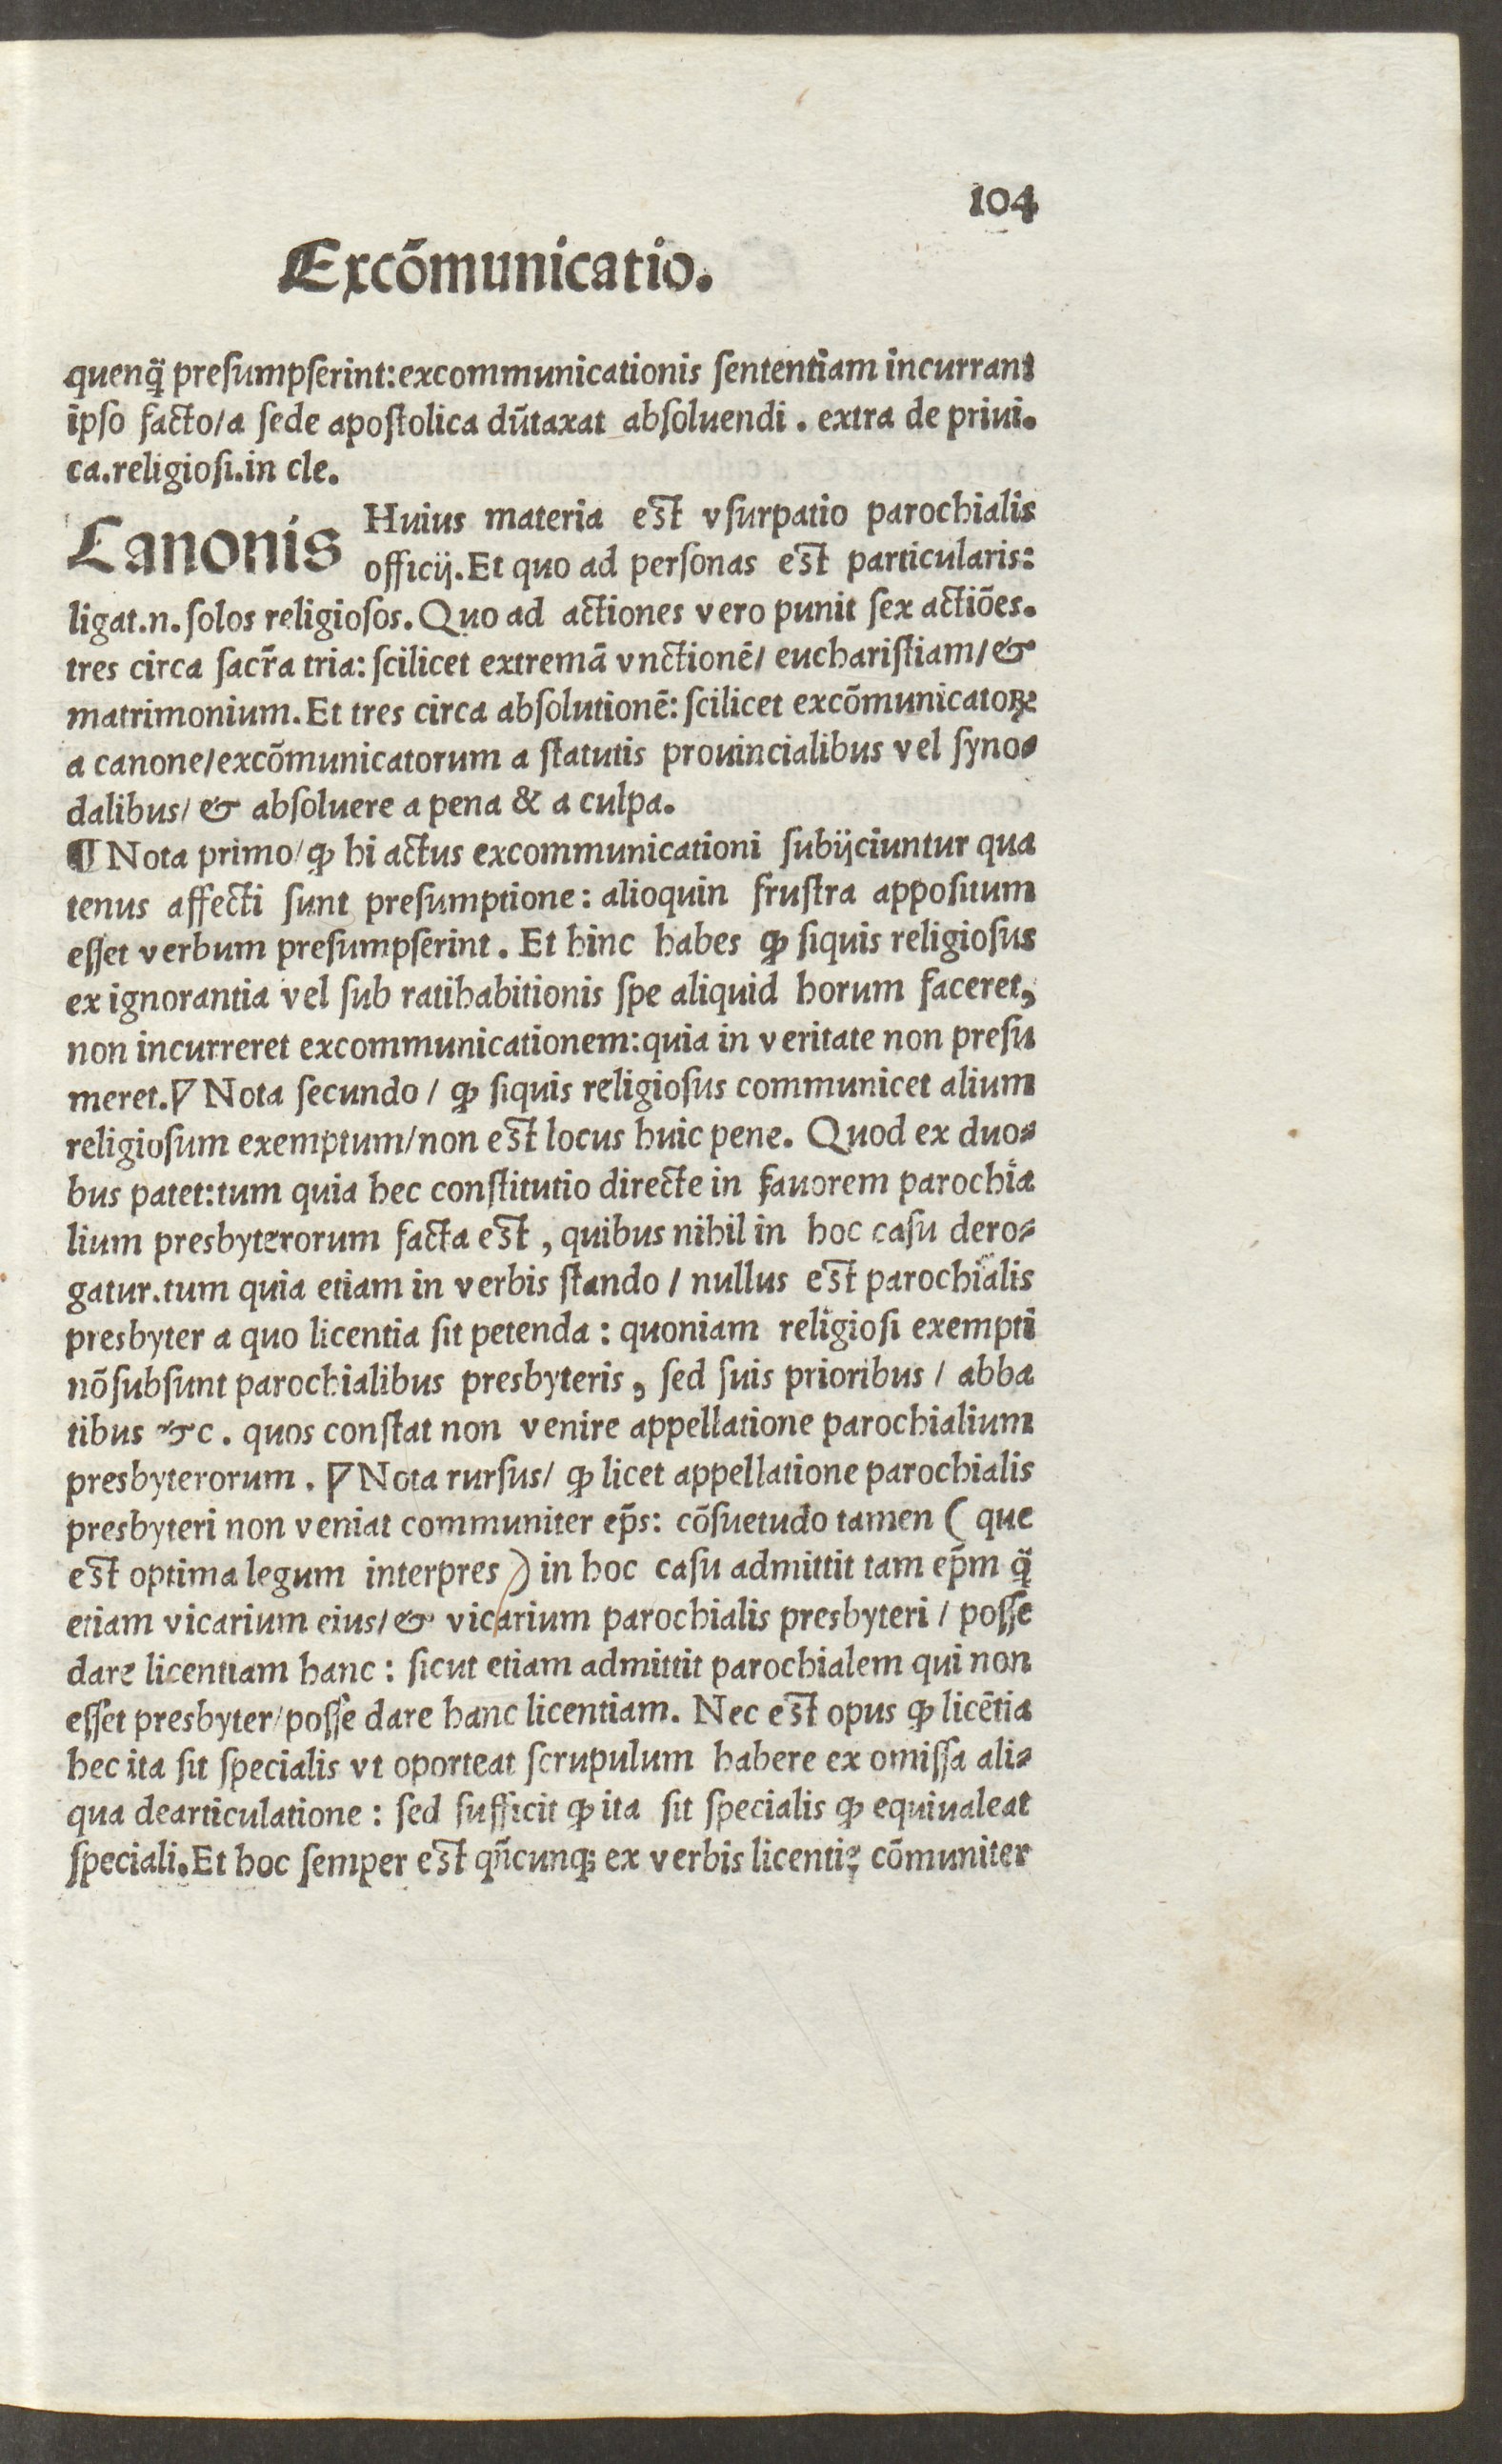 104
Excõmunicatio.
quenq̃ presumpserint:excommunicationis sententiam incurrant
ipso facto/a sede apostolica dũtaxat absoluendi. extra de priui.
ca.religiosi.in cle.
Canonis Huius materia est vsurpatio parochialis
officij.Et quo ad personas est particularis:
ligat.n.solos religiosos. Quo ad actiones vero punit sex actiões.
tres circa sacr̃a tria: scilicet extremã vnctionẽ/ eucharistiam/&
matrimonium.Et tres circa absolutionẽ: scilicet excõmunicatoꝝ
a canone/excõmunicatorum a statutis prouincialibus vel syno⸗
dalibus/ & absoluere a pena & a culpa.
¶ Nota primo/ ꝙ hi actus excommunicationi subijciuntur qua
tenus affecti sunt presumptione: alioquin frustra appositum
esset verbum presumpserint. Et hinc habes ꝙ siquis religiosus
ex ignorantia vel sub ratihabitionis spe aliquid horum faceret,
non incurreret excommunicationem:quia in veritate non presu
meret.∇ Nota secundo / ꝙ siquis religiosus communicet alium
religiosum exemptum/non est locus huic pene. Quod ex duo⸗
bus patet:tum quia hec constitutio directe in fauorem parochia
lium presbyterorum facta est, quibus nihil in hoc casu dero⸗
gatur.tum quia etiam in verbis stando / nullus est parochialis
presbyter a quo licentia sit petenda: quoniam religiosi exempti
nõsubsunt parochialibus presbyteris, sed suis prioribus / abba
tibus &c. quos constat non venire appellatione parochialium
presbyterorum. ∇ Nota rursus/ ꝙ licet appellatione parochialis
presbyteri non veniat communiter ep̃s: cõsuetudo tamen ( que
est optima legum interpres ) in hoc casu admittit tam ep̃m q̃
etiam vicarium eius/ & vicarium parochialis presbyteri / posse
dare licentiam hanc: sicut etiam admittit parochialem qui non
esset presbyter/posse dare hanc licentiam. Nec est opus ꝙ licẽtia
hec ita sit specialis vt oporteat scrupulum habere ex omissa ali⸗
qua dearticulatione: sed sufficit ꝙ ita sit specialis ꝙ equiualeat
speciali.Et hoc semper est qñcunq; ex verbis licentię cõmuniter